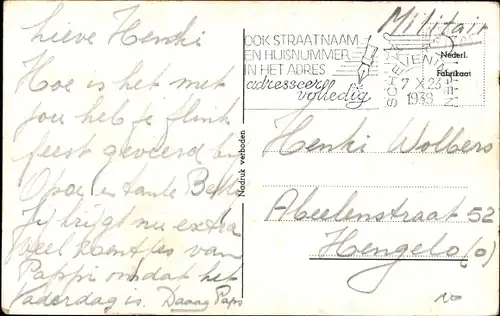 Lieve Henki
Hoe is het met
jou heb je flink
feest gevierd bij
Opa en tante Bets
Jij krijgt nu extra
veel kaartjes van
Pappi omdat het
Vaderdag is. Daaag Paps
Nadruk verboden
OOK STRAATNAAM
EN HUISNUMMER
IN HET ADRES
adresseer
volledig
SCHEVENINGEN
7 X 23
1939
Militair
Nederl.
Fabrikaat
Henki Wolbers
Abeelenstraat 52
Hengelo (o)